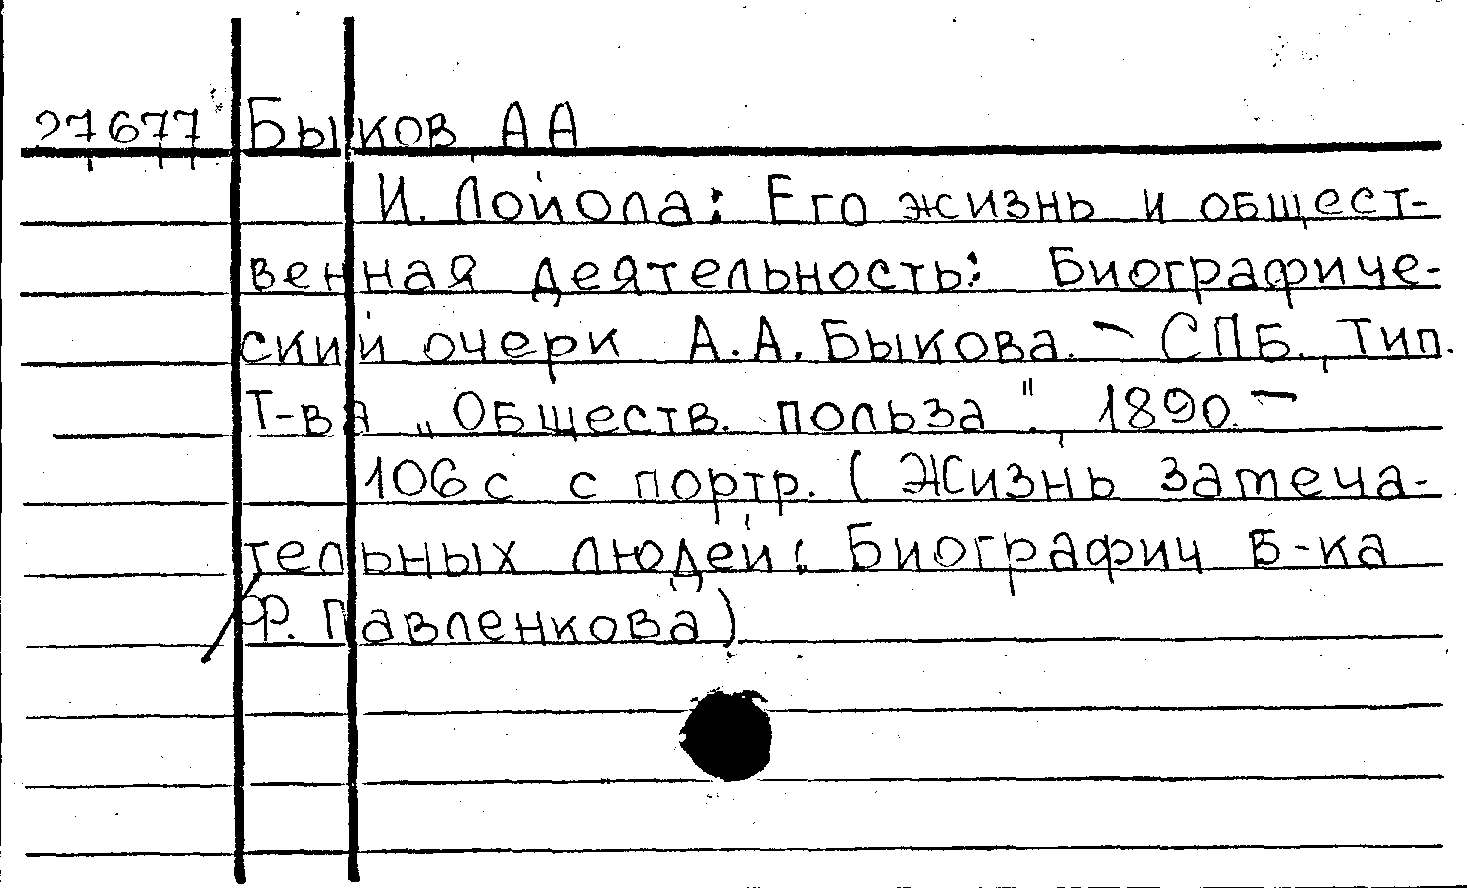 27677 Быков А А
И. Лойола: Его жизнь и общест-
венная деятельность: Биографиче-
ский очерк А.А. Быкова. - СПБ., Тип.
Т-ва „Обществ. польза", 1890. -
106 с с портр. (Жизнь замеча-
тельных людей. Биографич б-ка
Ф. Павленкова)